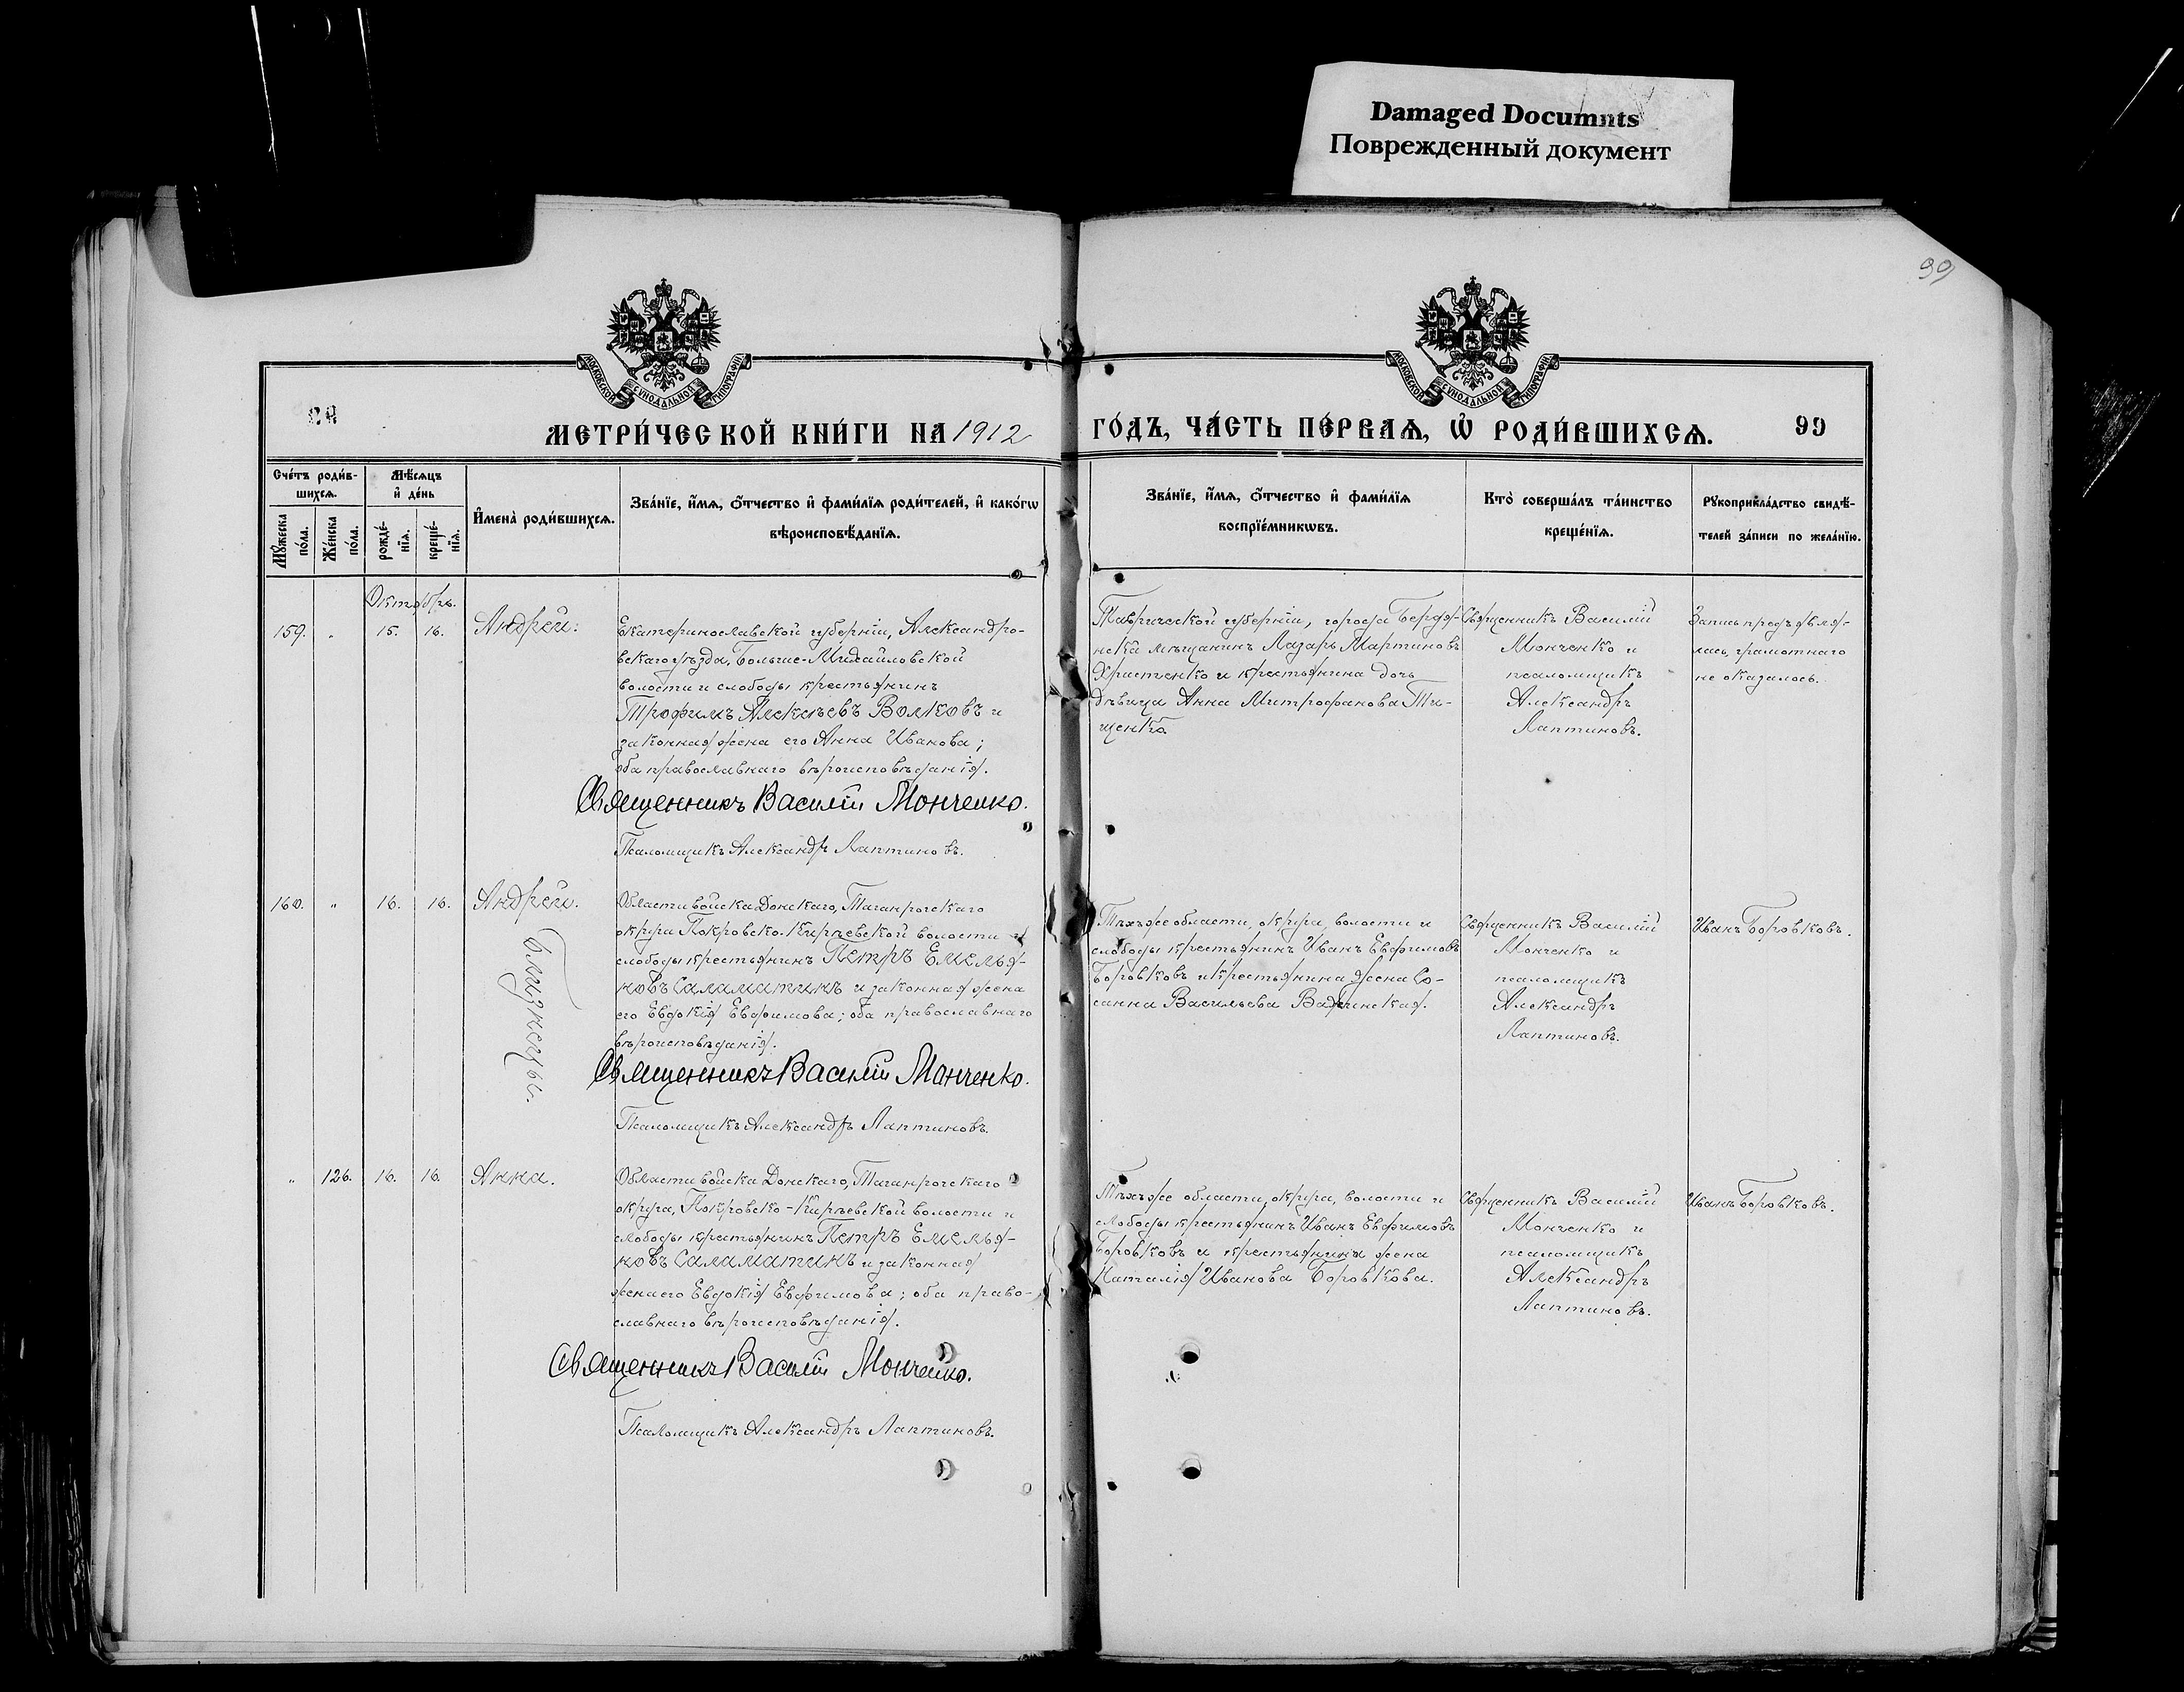 Damaged Documnts
Поврежденный документ
99
МОСКОВСКОЙ СѴНОДАЛЬНОЙ ТИПОГРАФІИ
МОСКОВСКОЙ СѴНОДАЛЬНОЙ ТИПОГРАФІИ
МЕТРИ́ЧЕСКОЙ КНИ́ГИ НА 1912 ГО́ДЪ, ЧА́СТЬ ПЕ́РВАѦ, Ѡ҆ РОДИ́ВШИХСѦ. 99
Сче́тъ роди́в-
шихсѧ.
Мꙋ́жеска
по́ла.
Же́нска
по́ла.
Мѣ́сѧцъ
и҆ де́нь
рожде́-
нїѧ.
креще́-
нїѧ.
И҆мена̀ роди́вшихсѧ.
Зва́нїе, и҆́мѧ, ѻ҆́тчество и҆ фами́лїѧ роди́телей, и҆ како́гѡ
вѣроисповѣ́данїѧ.
Зва́нїе, и҆́мѧ, ѻ҆́тчество и҆ фами́лїѧ
воспрїе́мникѡвъ.
Кто̀ соверша́лъ та́инство
креще́нїѧ.
Рꙋкоприкла́дство свидѣ́-
телей за́писи по жела́нїю.
Октябрь.
159. „ 15. 16. Андрей.
Екатеринославской губерніи, Александро-
вскаго уѣзда, Больше-Михайловской
волости и слободы крестьянинъ
Трофимъ Алексѣевъ Волковъ и
законная жена его Анна Иванова;
оба православнаго вѣроисповѣданія.
Священникъ Василій Монченко.
Псаломщикъ Александръ Лаптиновъ.
Таврической губерніи, города Бердян-
ска мѣщанинъ Лазарь Мартиновъ
Христенко и крестьянина дочь
дѣвица Анна Митрофанова Ти-
щенко.
Священникъ Василій
Монченко и
псаломщикъ
Александръ
Лаптиновъ.
Запись предъявля-
лась, грамотнаго
не оказалось.
160. „ 16. 16. Андрей.
близнецы.
Области войска Донскаго, Таганрогскаго
округа Покровско-Кирѣевской волости и
слободы крестьянинъ Петръ Емелья-
новъ Саламатинъ и законная жена
его Евдокія Евфимова; оба православнаго
вѣроисповѣданія.
Священникъ Василій Монченко.
Псаломщикъ Александръ Лаптиновъ.
Тѣхъ же области, округа, волости и
слободы крестьянинъ Иванъ Евфимовъ
Боровковъ и крестьянина жена Со-
санна Васильева
Священникъ Василій
Монченко и
псаломщикъ
Александръ
Лаптиновъ.
Иванъ Боровковъ.
„ 126. 16. 16. Анна.
Области войска Донскаго, Таганрогскаго
округа, Покровско-Кирѣевской волости и
слободы крестьянинъ Петръ Емелья-
новъ Саламатинъ и законная
жена его Евдокія Евфимова; оба право-
славнаго вѣроисповѣданія.
Священникъ Василій Монченко.
Псаломщикъ Александръ Лаптиновъ.
Тѣхъ же области, округа, волости и
слободы крестьянинъ Иванъ Евфимовъ
Боровковъ и крестьянина жена
Наталія Иванова Боровкова.
Священникъ Василій
Монченко и
псаломщикъ
Александръ
Лаптиновъ.
Иванъ Боровковъ.